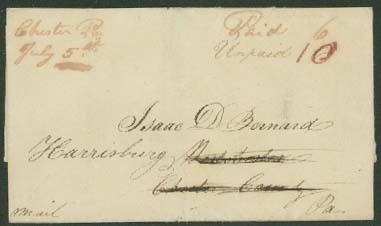 Chester Pa
July 5th
Paid 6
Unpaid 10
Isaac D Bernard
Harrisburg Westchester
Chester County
mail Pa